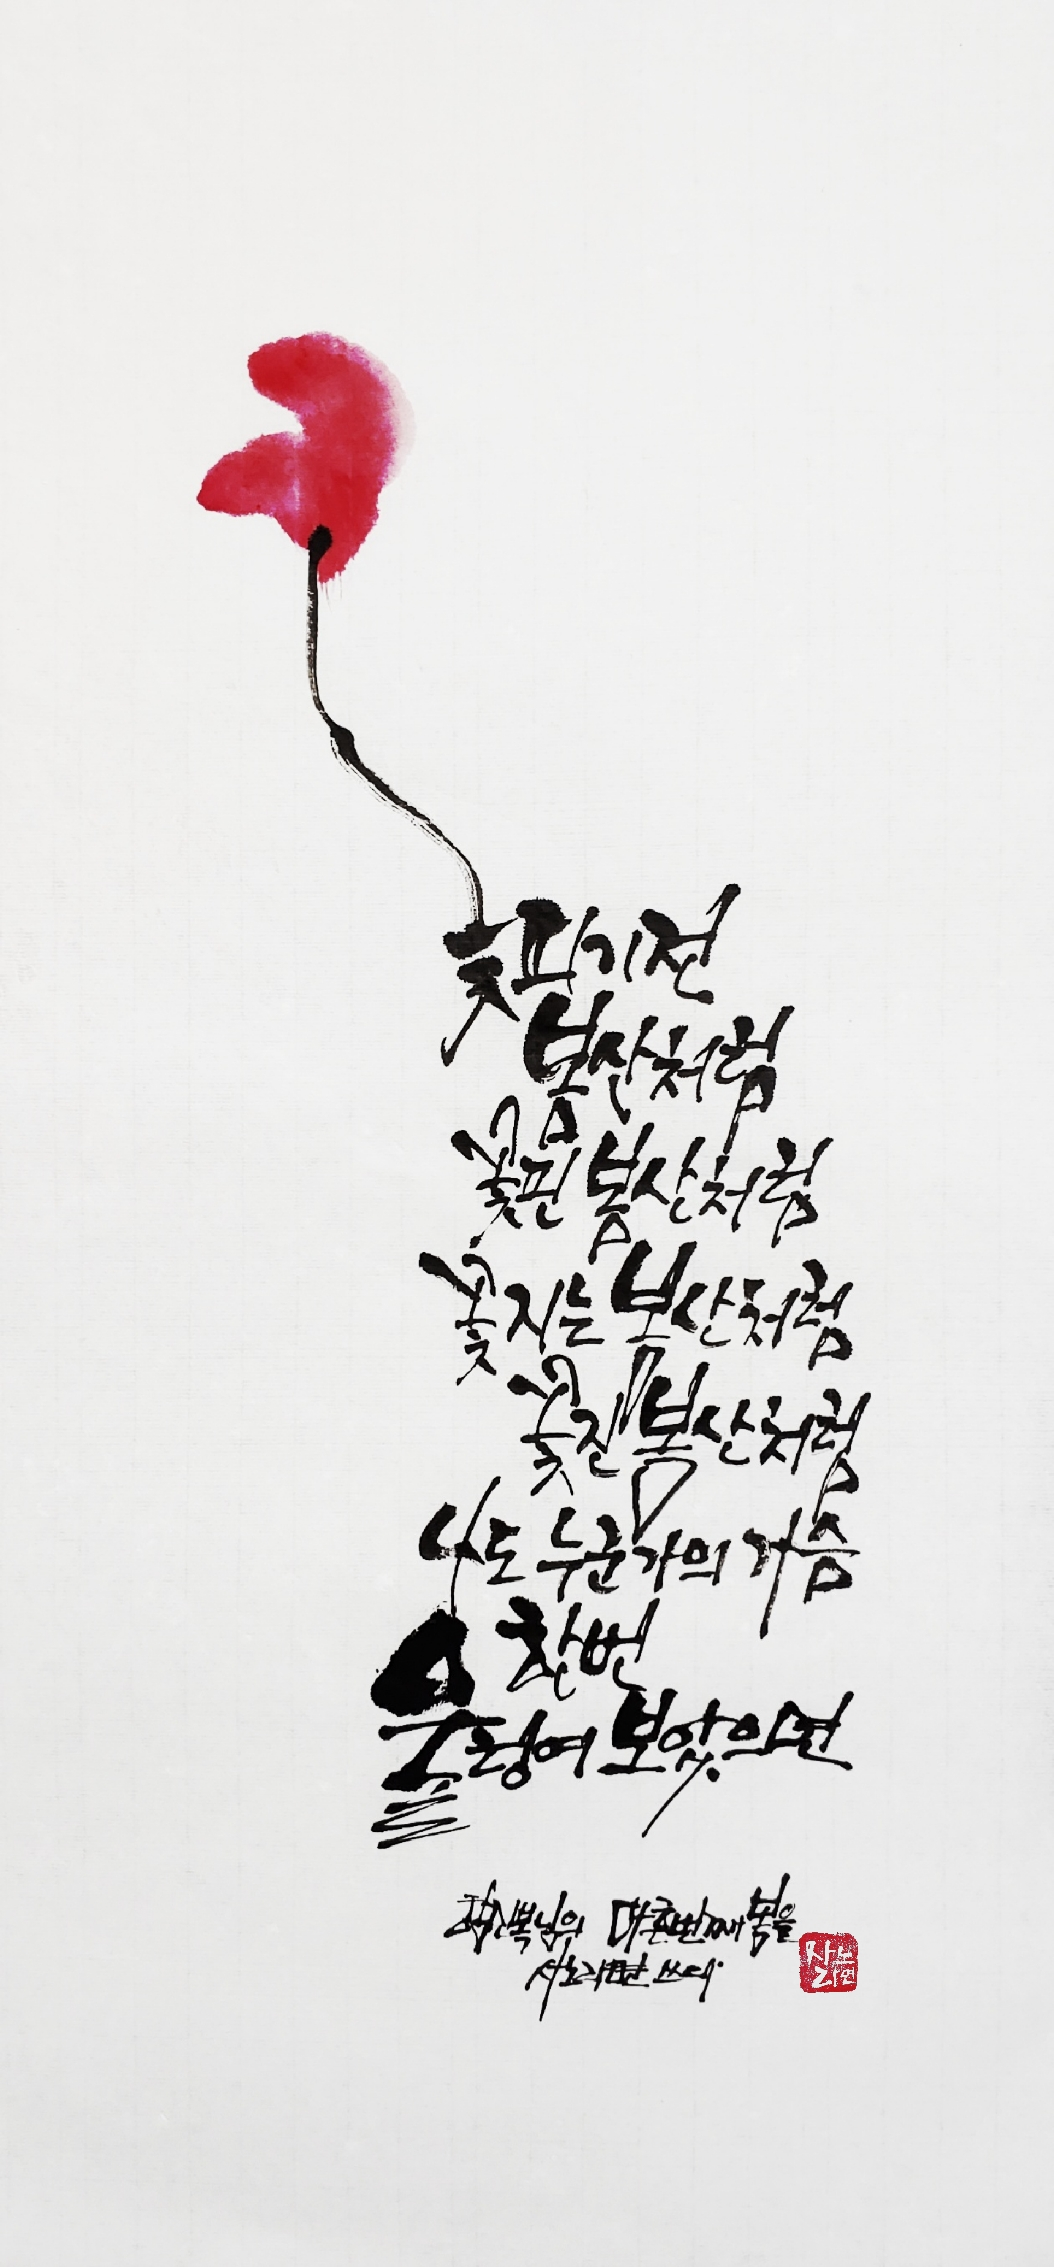 꽃피기전
봄산처럼
꽃핀 봄산처럼
꽃지는 봄산처럼
꽃진 봄산처럼
나도 누군가의 가슴
한번
울렁여 보았으면
마흔번째 봄을
쓰다